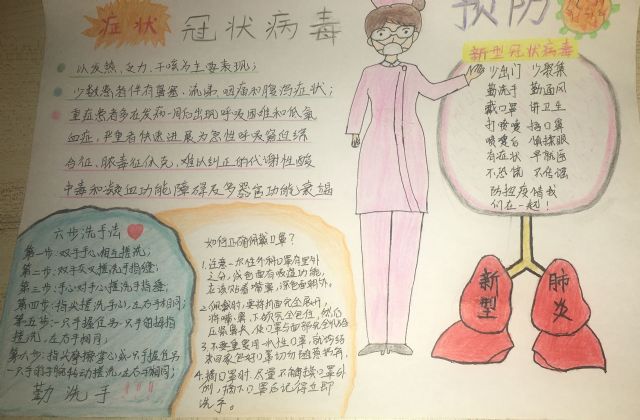 症状
冠状病毒
预防
以发热、乏力、干咳为主要表现;
少数患者伴有鼻塞、流涕、咽痛和腹泻症状;
重症患者多在发病一周后出现呼吸困难和低氧
血症,严重者快速进展为急性呼吸窘迫综
合征、脓毒症休克、难以纠正的代谢性酸
中毒和凝血功能障碍及多器官功能衰竭
新型冠状病毒
少出门 少聚集
勤洗手 勤通风
戴口罩 讲卫生
打喷嚏 捂口鼻
喷嚏后 慎揉眼
有症状 早就医
不恐慌 不传谣
防控疫情我
们在一起!
六步洗手法
第一步:双手手心相互搓洗;
第二步:双手交叉搓洗手指缝;
第三步:手心对手心搓洗手指缝;
第四步:指尖搓洗手心,左右手相同;
第五步:一只手握住另一只手的拇指
搓洗,左右手相同;
第六步:指尖摩擦掌心或一只手握住另
一只手的手腕转动搓洗,左右手相同;
勤洗手!!!
如何正确佩戴口罩?
1.注意一次性外科口罩有里外
之分,浅色面有吸湿功能,
应该贴着嘴鼻,深色面朝外;
2.佩戴时,要将折面完全展开,
将嘴、鼻、下颌完全包住,然后
压紧鼻夹,使口罩与面部完全
3.不要重复用一次性口罩,
4.摘口罩时,尽量不触摸口罩外
侧,摘下口罩后记得立即
洗手。
新型
肺炎